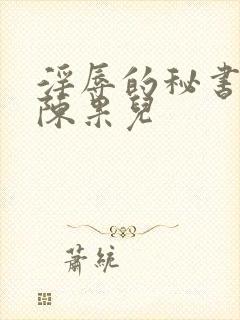 淫辱的秘書
陳果兒
蕭統